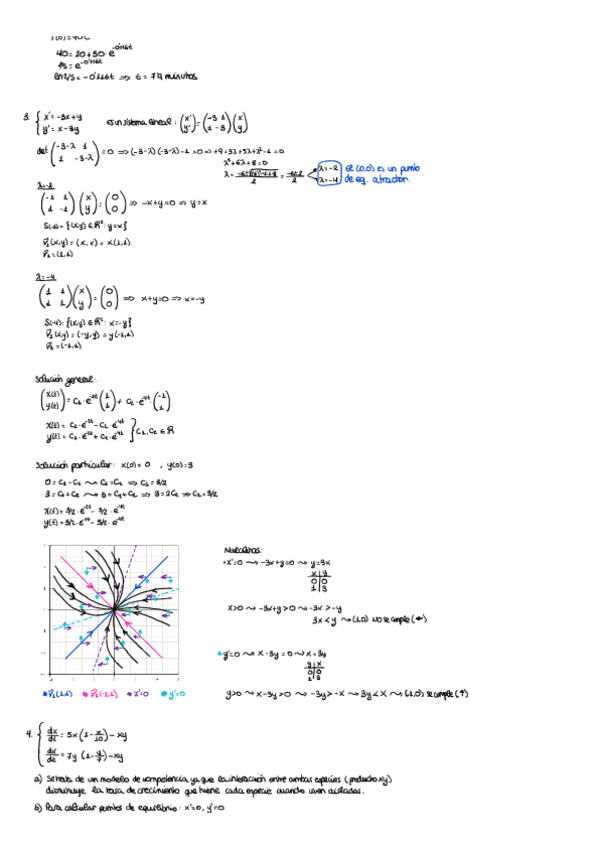 40 = 20 + 50 · e^-0'116t
2/5 = e^-0'116t
ln 2/5 = -0'116t ⟹ t = 7'9 minutos
3. { x' = -3x + y
y' = x - 3y
es un sistema lineal: (x' y') = (-3 1 / 1 -3)(x y)
det (-3-λ 1 / 1 -3-λ) = 0 ⟹ (-3-λ)(-3-λ) - 1 = 0 ⟹ +9 + 3λ + 3λ + λ² - 1 = 0
λ² + 6λ + 8 = 0
λ=-2
λ=-4
El (0,0) es un punto
de eq. atractor.
λ=-2
(-1 1 / 1 -1)(x y) = (0 0) ⟹ -x + y = 0 ⟹ y = x
S(-2) = {(x,y) ∈ R²: y = x}
(x,y) = (x, x) = x(1,1)
= (1,1)
λ=-4
(1 1 / 1 1)(x y) = (0 0) ⟹ x + y = 0 ⟹ x = -y
S(-4) = {(x,y) ∈ R²: x = -y}
(x,y) = (-y,y) = y(-1,1)
= (-1,1)
Solución general:
(x(t) y(t)) = C₁ · e^-2t (1 1) + C₂ · e^-4t (-1 1)
x(t) = C₁ · e^-2t - C₂ · e^-4t
y(t) = C₁ · e^-2t + C₂ · e^-4t } C₁, C₂ ∈ R
Solución particular: x(0) = 0 , y(0) = 3
0 = C₁ - C₂ ⇝ C₁ = C₂ ⟹ C₁ = 3/2
3 = C₁ + C₂ ⇝ 3 = C₂ + C₂ ⟹ 3 = 2C₂ ⟹ C₂ = 3/2
x(t) = 3/2 · e^-2t - 3/2 · e^-4t
Nulclinas:
• x'=0 ⇝ -3x+y=0 ⇝ y=3x
x | y
0 | 0
1 | 3
x>0 ⇝ -3x+y>0 ⇝ -3x > -y
3x < y ⇝ (1,0) No se cumple (←)
y'=0 ⇝ x-3y=0 ⇝ x=3y
y | x
0 | 0
1 | 3
y>0 ⇝ x-3y>0 ⇝ -3y>-x ⇝ 3y<x ⇝ (1,0) se cumple (↑)
(1,1) (-1,1) x'=0 y'=0
4. { dx/dt = 5x (1 - x/10) - xy
dx/dt = 7y (1 - y/7) - xy
a) Se trata de un modelo de competencia, ya que la interacción entre ambas especies (producto xy)
disminuye la tasa de crecimiento que tiene cada especie cuando viven aisladas.
b) Para calcular puntos de equilibrio: x'=0, y'=0